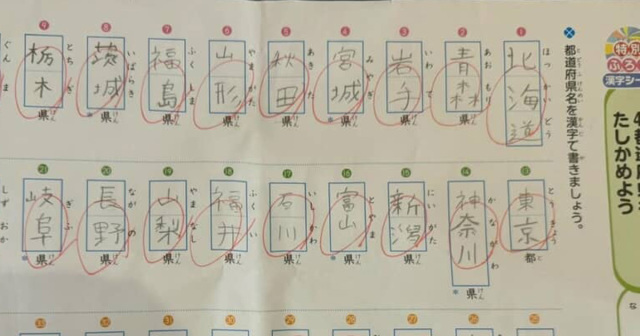 特別
ふろく
漢字シー
たしかめよう
都道府県名を漢字で書きましょう。
1 ほっかいどう 北海道
2 あおもり 青森県
3 いわて 岩手県
4 みやぎ 宮城県
5 あきた 秋田県
6 やまがた 山形県
7 ふくしま 福島県
8 いばらき 茨城県
9 とちぎ 栃木県
ぐんま
13 とうきょう 東京都
14 かながわ 神奈川県
15 にいがた 新潟県
16 とやま 富山県
17 いしかわ 石川県
18 ふくい 福井県
19 やまなし 山梨県
20 ながの 長野県
21 ぎふ 岐阜県
しずおか
25
26
27
28
29
30
31
32
33